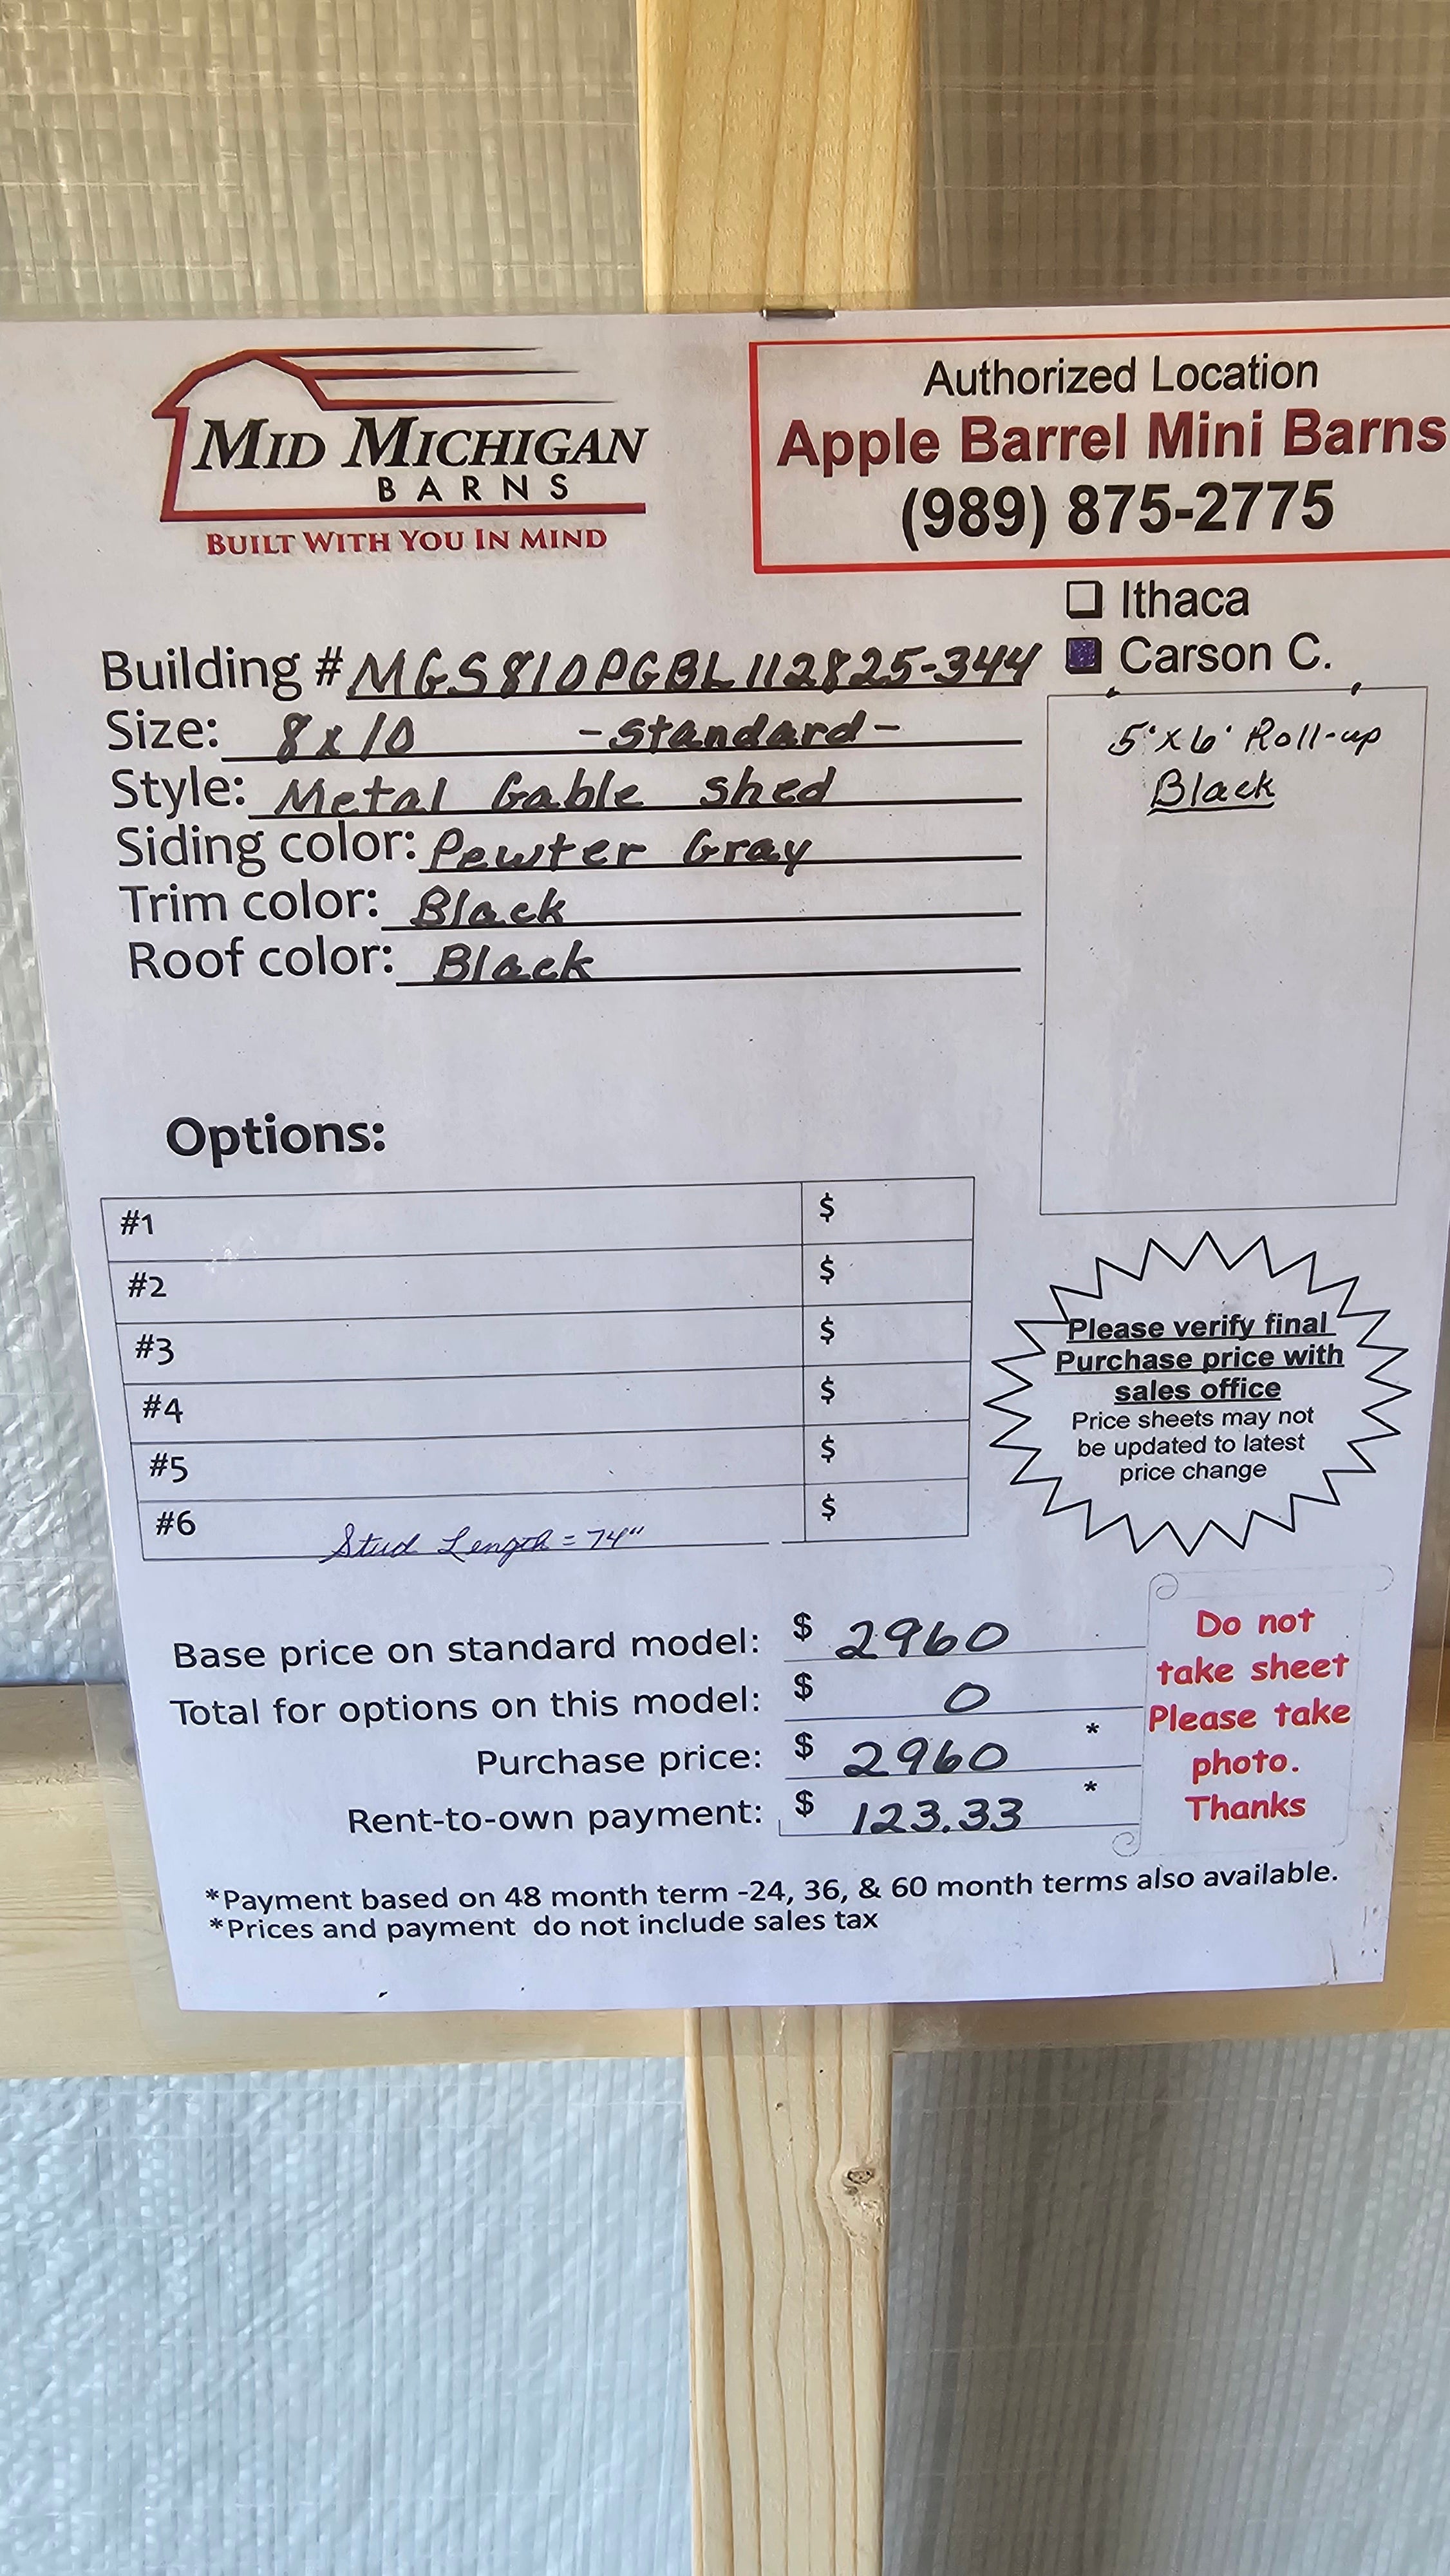 MID MICHIGAN
BARNS
BUILT WITH YOU IN MIND
Authorized Location
Apple Barrel Mini Barns
(989) 875-2775
Ithaca
Carson C.
Building # MGS810PGBL112825-344
Size: 8x10 -standard-
Style: Metal Gable shed
Siding color: Pewter Gray
Trim color: Black
Roof color: Black
5'x6' Roll-up
Black
Options:
#1 $
#2 $
#3 $
#4 $
#5 $
#6 $
Stud Length = 74"
Please verify final
Purchase price with
sales office
Price sheets may not
be updated to latest
price change
Base price on standard model: $ 2960
Total for options on this model: $ 0
Purchase price: $ 2960 *
Rent-to-own payment: $ 123.33 *
Do not
take sheet
Please take
photo.
Thanks
*Payment based on 48 month term -24, 36, & 60 month terms also available.
*Prices and payment do not include sales tax